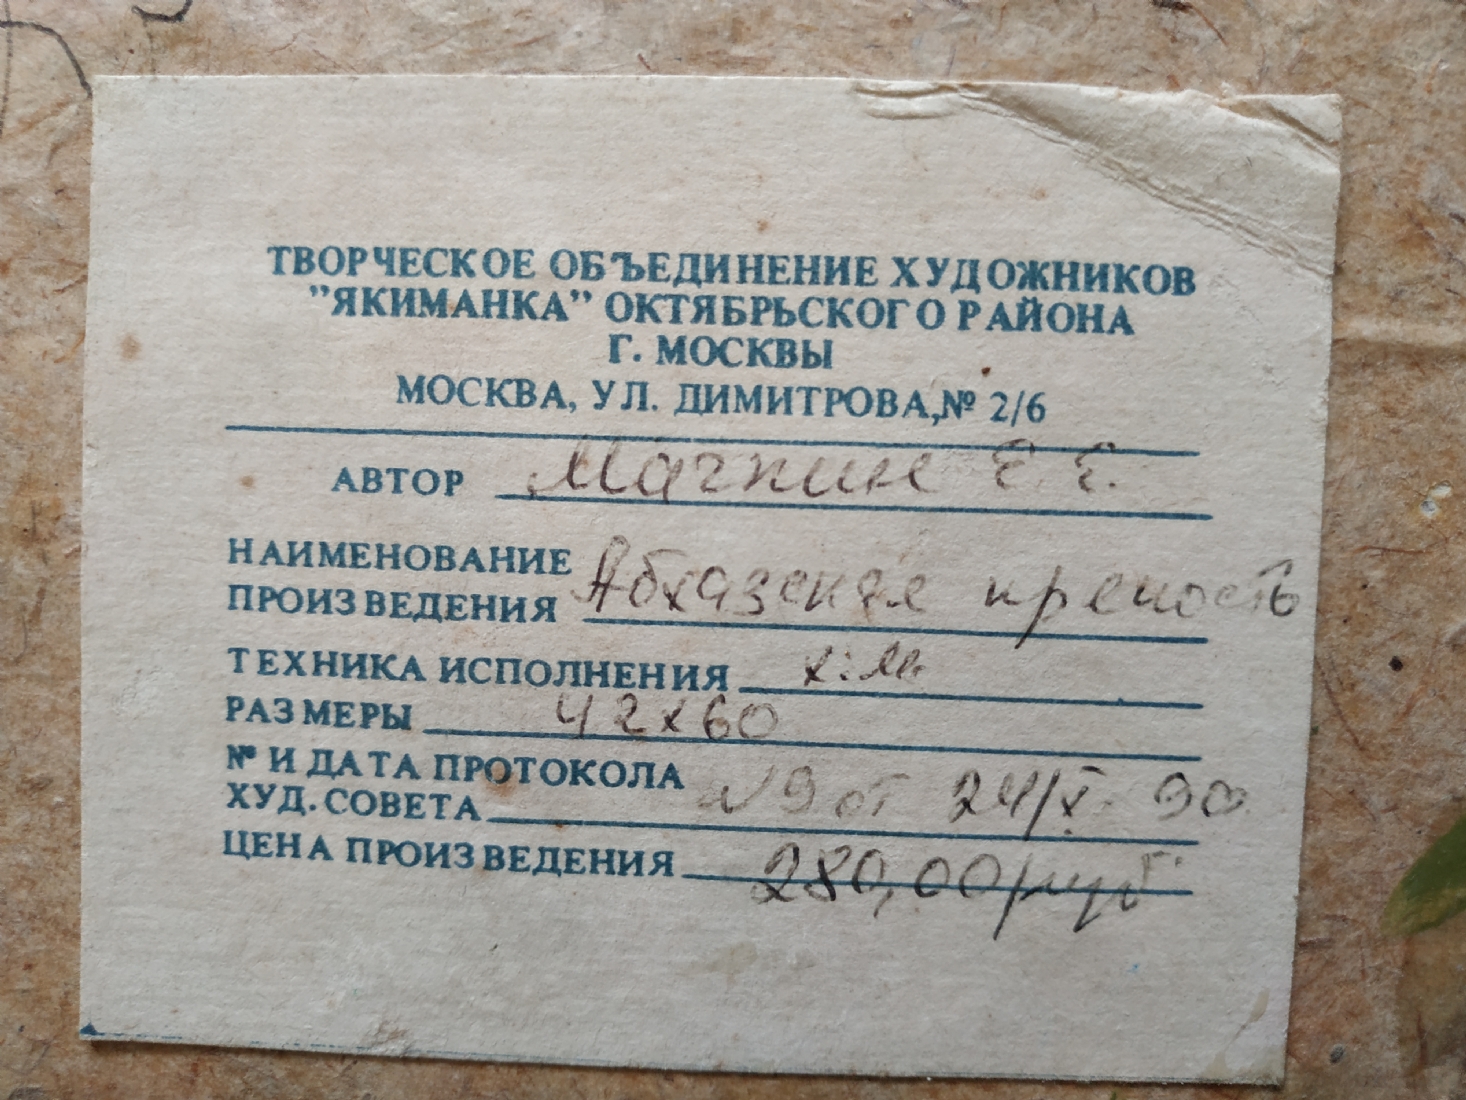 ТВОРЧЕСКОЕ ОБЪЕДИНЕНИЕ ХУДОЖНИКОВ
"ЯКИМАНКА" ОКТЯБРЬСКОГО РАЙОНА
Г. МОСКВЫ
МОСКВА, УЛ. ДИМИТРОВА,№ 2/6
АВТОР Е. Е.
НАИМЕНОВАНИЕ
ПРОИЗВЕДЕНИЯ Абхазская крепость
ТЕХНИКА ИСПОЛНЕНИЯ х.м.
РАЗМЕРЫ 42х60
№ И ДАТА ПРОТОКОЛА
ХУД.СОВЕТА №9 от 24/X. 90
ЦЕНА ПРОИЗВЕДЕНИЯ 280,00 руб.